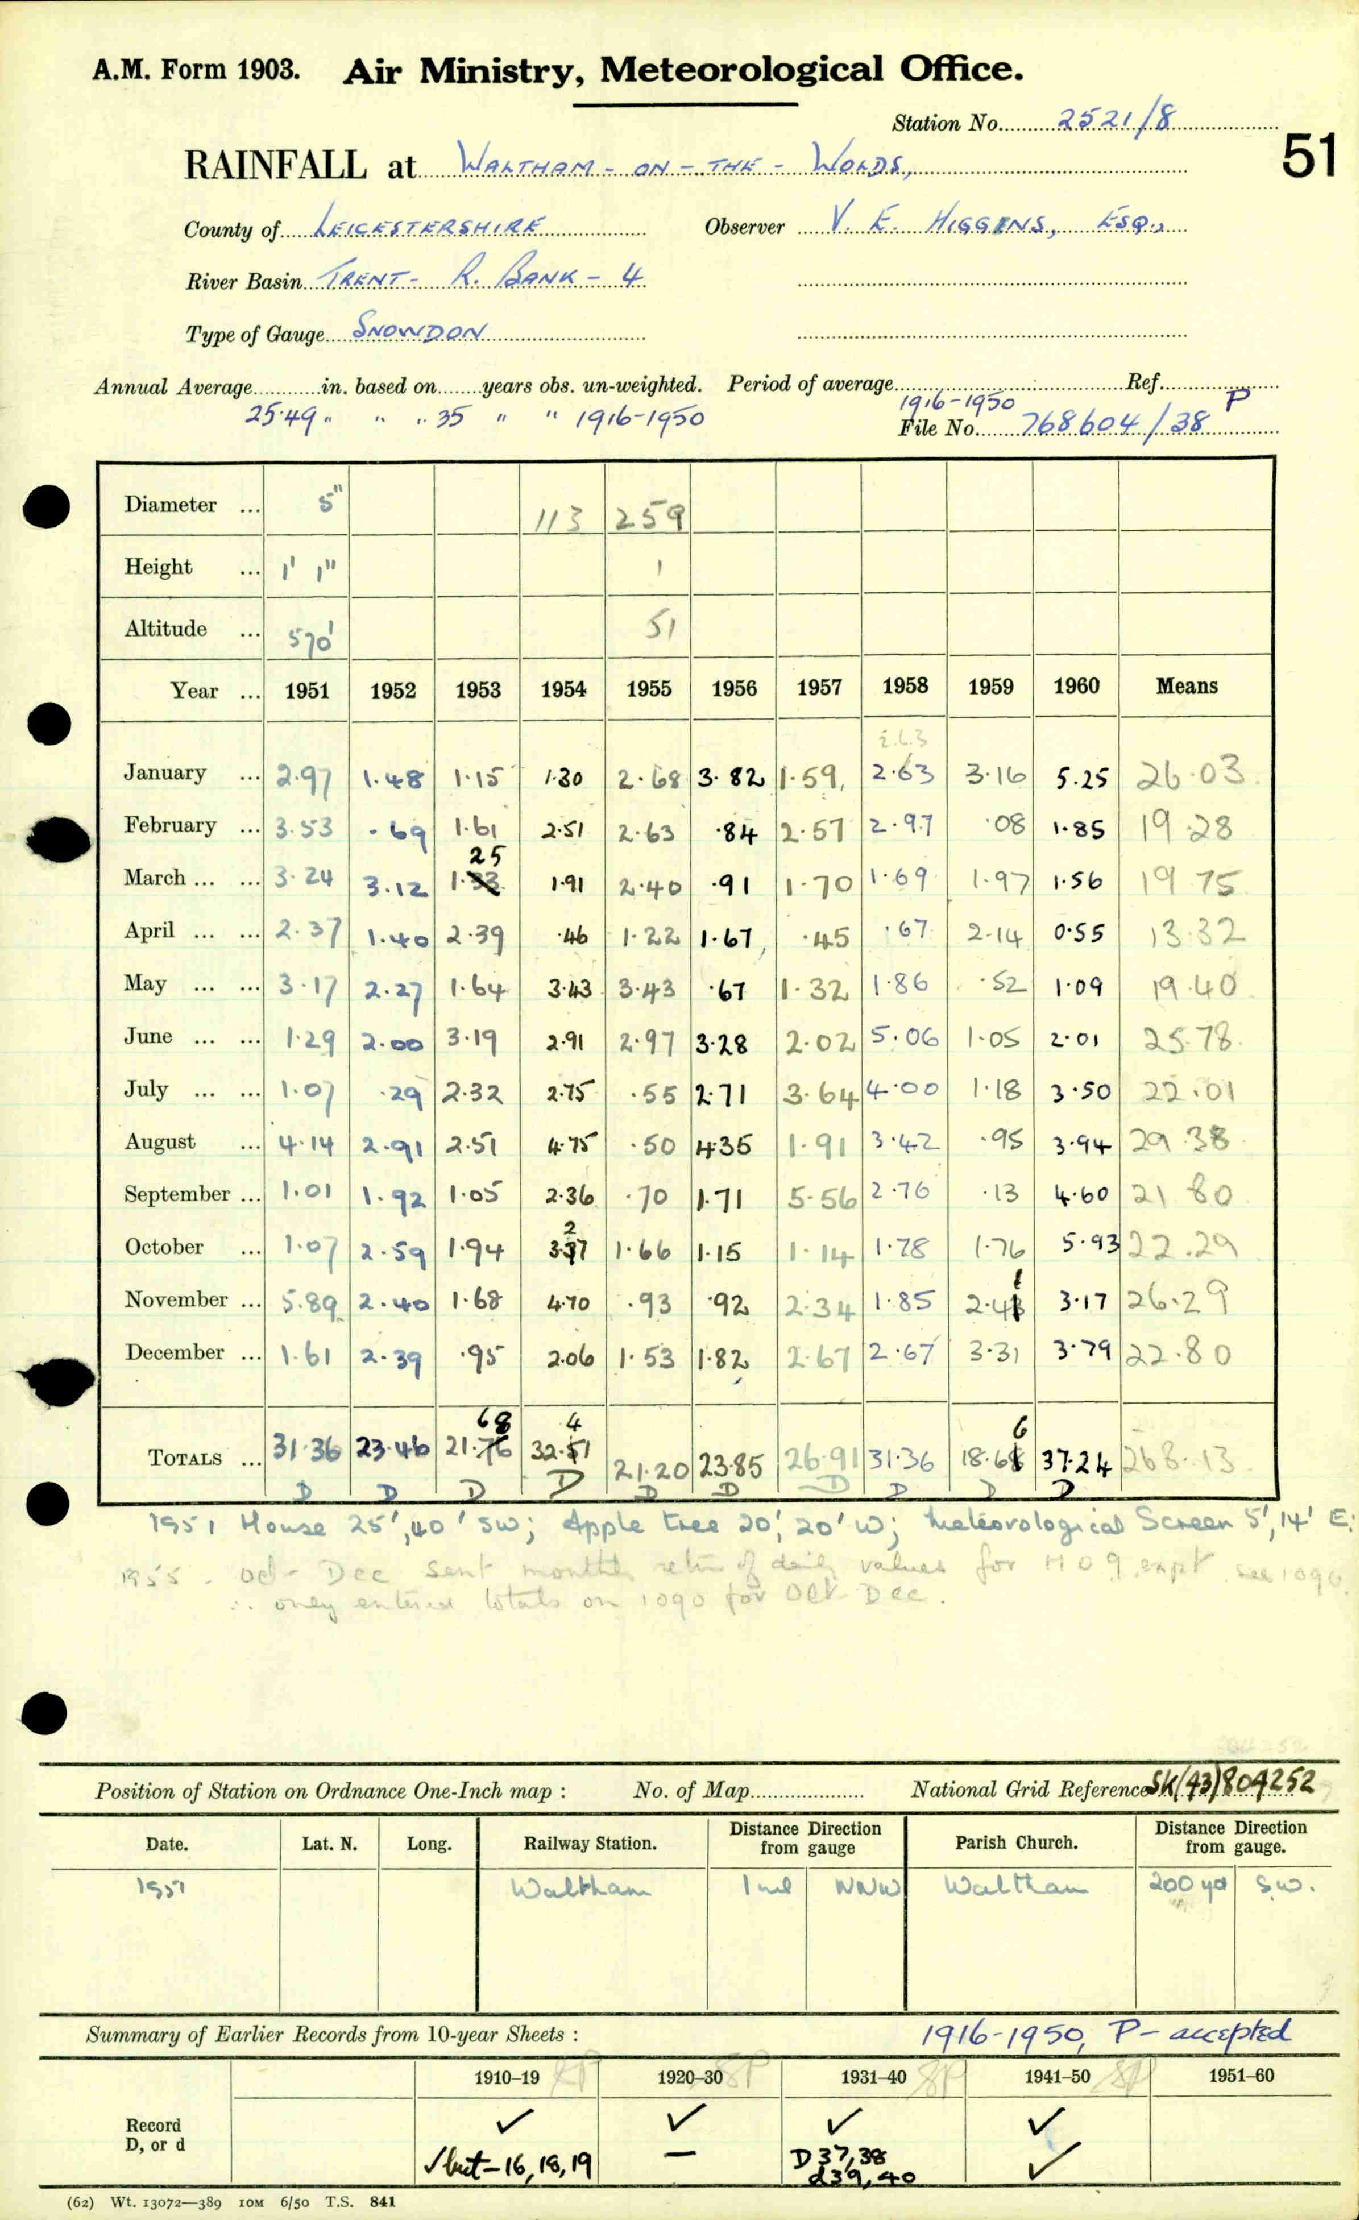 A.M. Form 1903. Air Ministry, Meteorological Office.
Station No. 2521/8
51
RAINFALL at WALTHAM-ON-THE-WOLDS,
County of LEICESTERSHIRE Observer V. E. HIGGINS, ESQ.,
River Basin TRENT- R. BANK - 4
Type of Gauge SNOWDON
Annual Average in. based on years obs. un-weighted. Period of average Ref.
25.49 " " " 35 " " 1916-1950 1916-1950 P
File No. 768604/38
Diameter ... 5" 113 259
Height ... 1' 1" 1
Altitude ... 570' 51
Year ... 1951 1952 1953 1954 1955 1956 1957 1958 1959 1960 Means
January ... 2.97 1.48 1.15 1.30 2.68 3.82 1.59, 2.63 3.16 5.25 26.03
February ... 3.53 .69 1.61 2.51 2.63 .84 2.57 2.97 .08 1.85 19.28
25
March ... ... 3.24 3.12 1.33 1.91 2.40 .91 1.70 1.69 1.97 1.56 19 75
April ... ... 2.37 1.40 2.39 .46 1.22 1.67, .45 .67 2.14 0.55 13.32
May ... ... 3.17 2.27 1.64 3.43 3.43 .67 1.32 1.86 .52 1.09 19.40
June ... ... 1.29 2.00 3.19 2.91 2.97 3.28 2.02 5.06 1.05 2.01 25.78
July ... ... 1.07 .29 2.32 2.75 .55 2.71 3.64 4.00 1.18 3.50 22.01
August ... 4.14 2.91 2.51 4.75 .50 4.35 1.91 3.42 .95 3.94 29.38
September ... 1.01 1.92 1.05 2.36 .70 1.71 5.56 2.76 .13 4.60 21 80
2
October ... 1.07 2.59 1.94 3.37 1.66 1.15 1.14 1.78 1.76 5.93 22.29
1
November ... 5.89 2.40 1.68 4.70 .93 .92 2.34 1.85 2.4 3.17 26.29
December ... 1.61 2.39 .95 2.06 1.53 1.82 2.67 2.67 3.31 3.79 22.80
68 4 6
TOTALS ... 31.36 23.46 21.76 32.51 21.20 23.85 26.91 31.36 18.68 37.24 268.13
D D D D D D D D D D
1951 House 25', 40' SW; Apple tree 20', 20' W; Meteorological Screen 5', 14' E;
1955 . Oct - Dec sent monthly retn of daily values for M O 9 expt see 1090
∴ only entered totals on 1090 for Oct-Dec.
Position of Station on Ordnance One-Inch map : No. of Map National Grid Reference SK(43)804252
Date. Lat. N. Long. Railway Station. Distance Direction from gauge Parish Church. Distance Direction from gauge.
1951 Waltham 1 ml NNW Waltham 200 yd S.W.
Summary of Earlier Records from 10-year Sheets : 1916-1950, P- accepted
1910–19 1920–30 1931–40 1941–50 1951–60
Record ✓ ✓ ✓ ✓
D, or d ✓but-16,18,19 — D 37,38 ✓
d39,40
(62) Wt. 13072—389 10M 6/50 T.S. 841